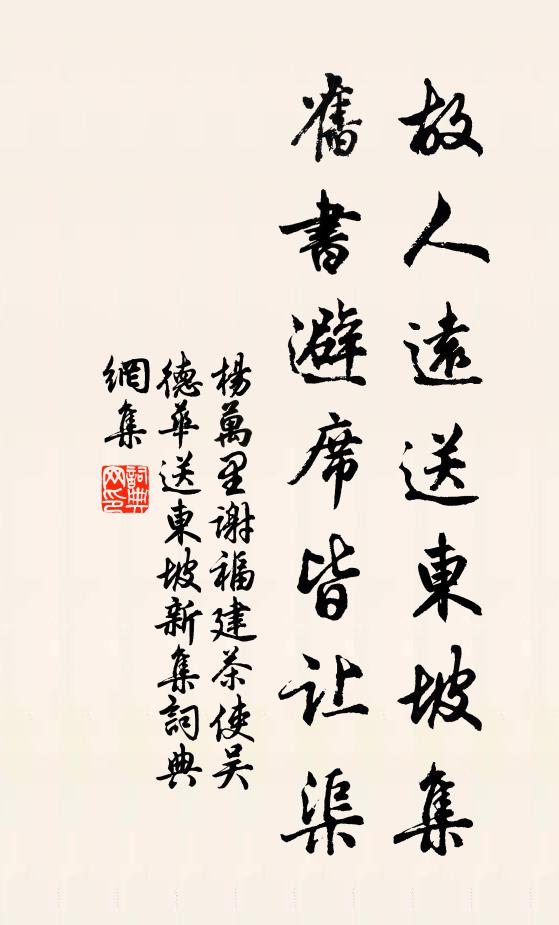 故人遠送東坡集
舊書避席皆让渠
楊萬里謝福建茶使吴
德華送東坡新集詞典
網集
詞典
网印